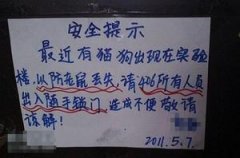 安全提示
最近有猫狗出现在实验
楼，以防老鼠丢失，请426所有人员
出入随手锁门，造成不便敬请
谅解！
2011.5.7